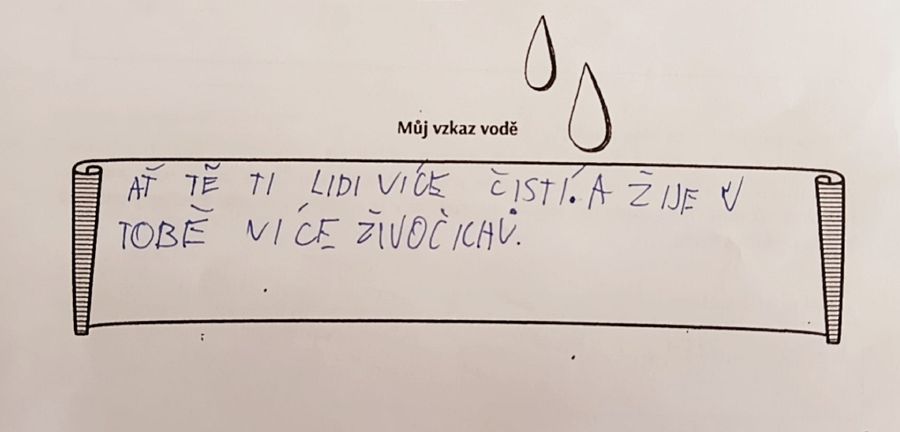 Můj vzkaz vodě
AŤ TĚ TI LIDI VÍCE ČISTÍ. A ŽIJE V
TOBĚ VÍCE ŽIVOČICHŮ.